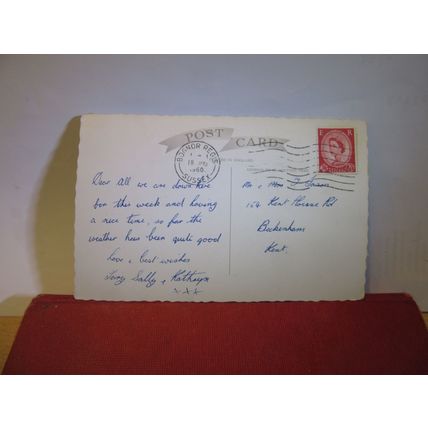 POST CARD
BOGNOR REGIS
18
1960
SUSSEX
E R
Dear All we are down here
for this week and having
a nice time, so far the
weather has been quite good
love & best wishes
Tony Sally & Kathryn
xxx
Mr & Mrs
154 Kent House Rd
Beckenham
Kent.